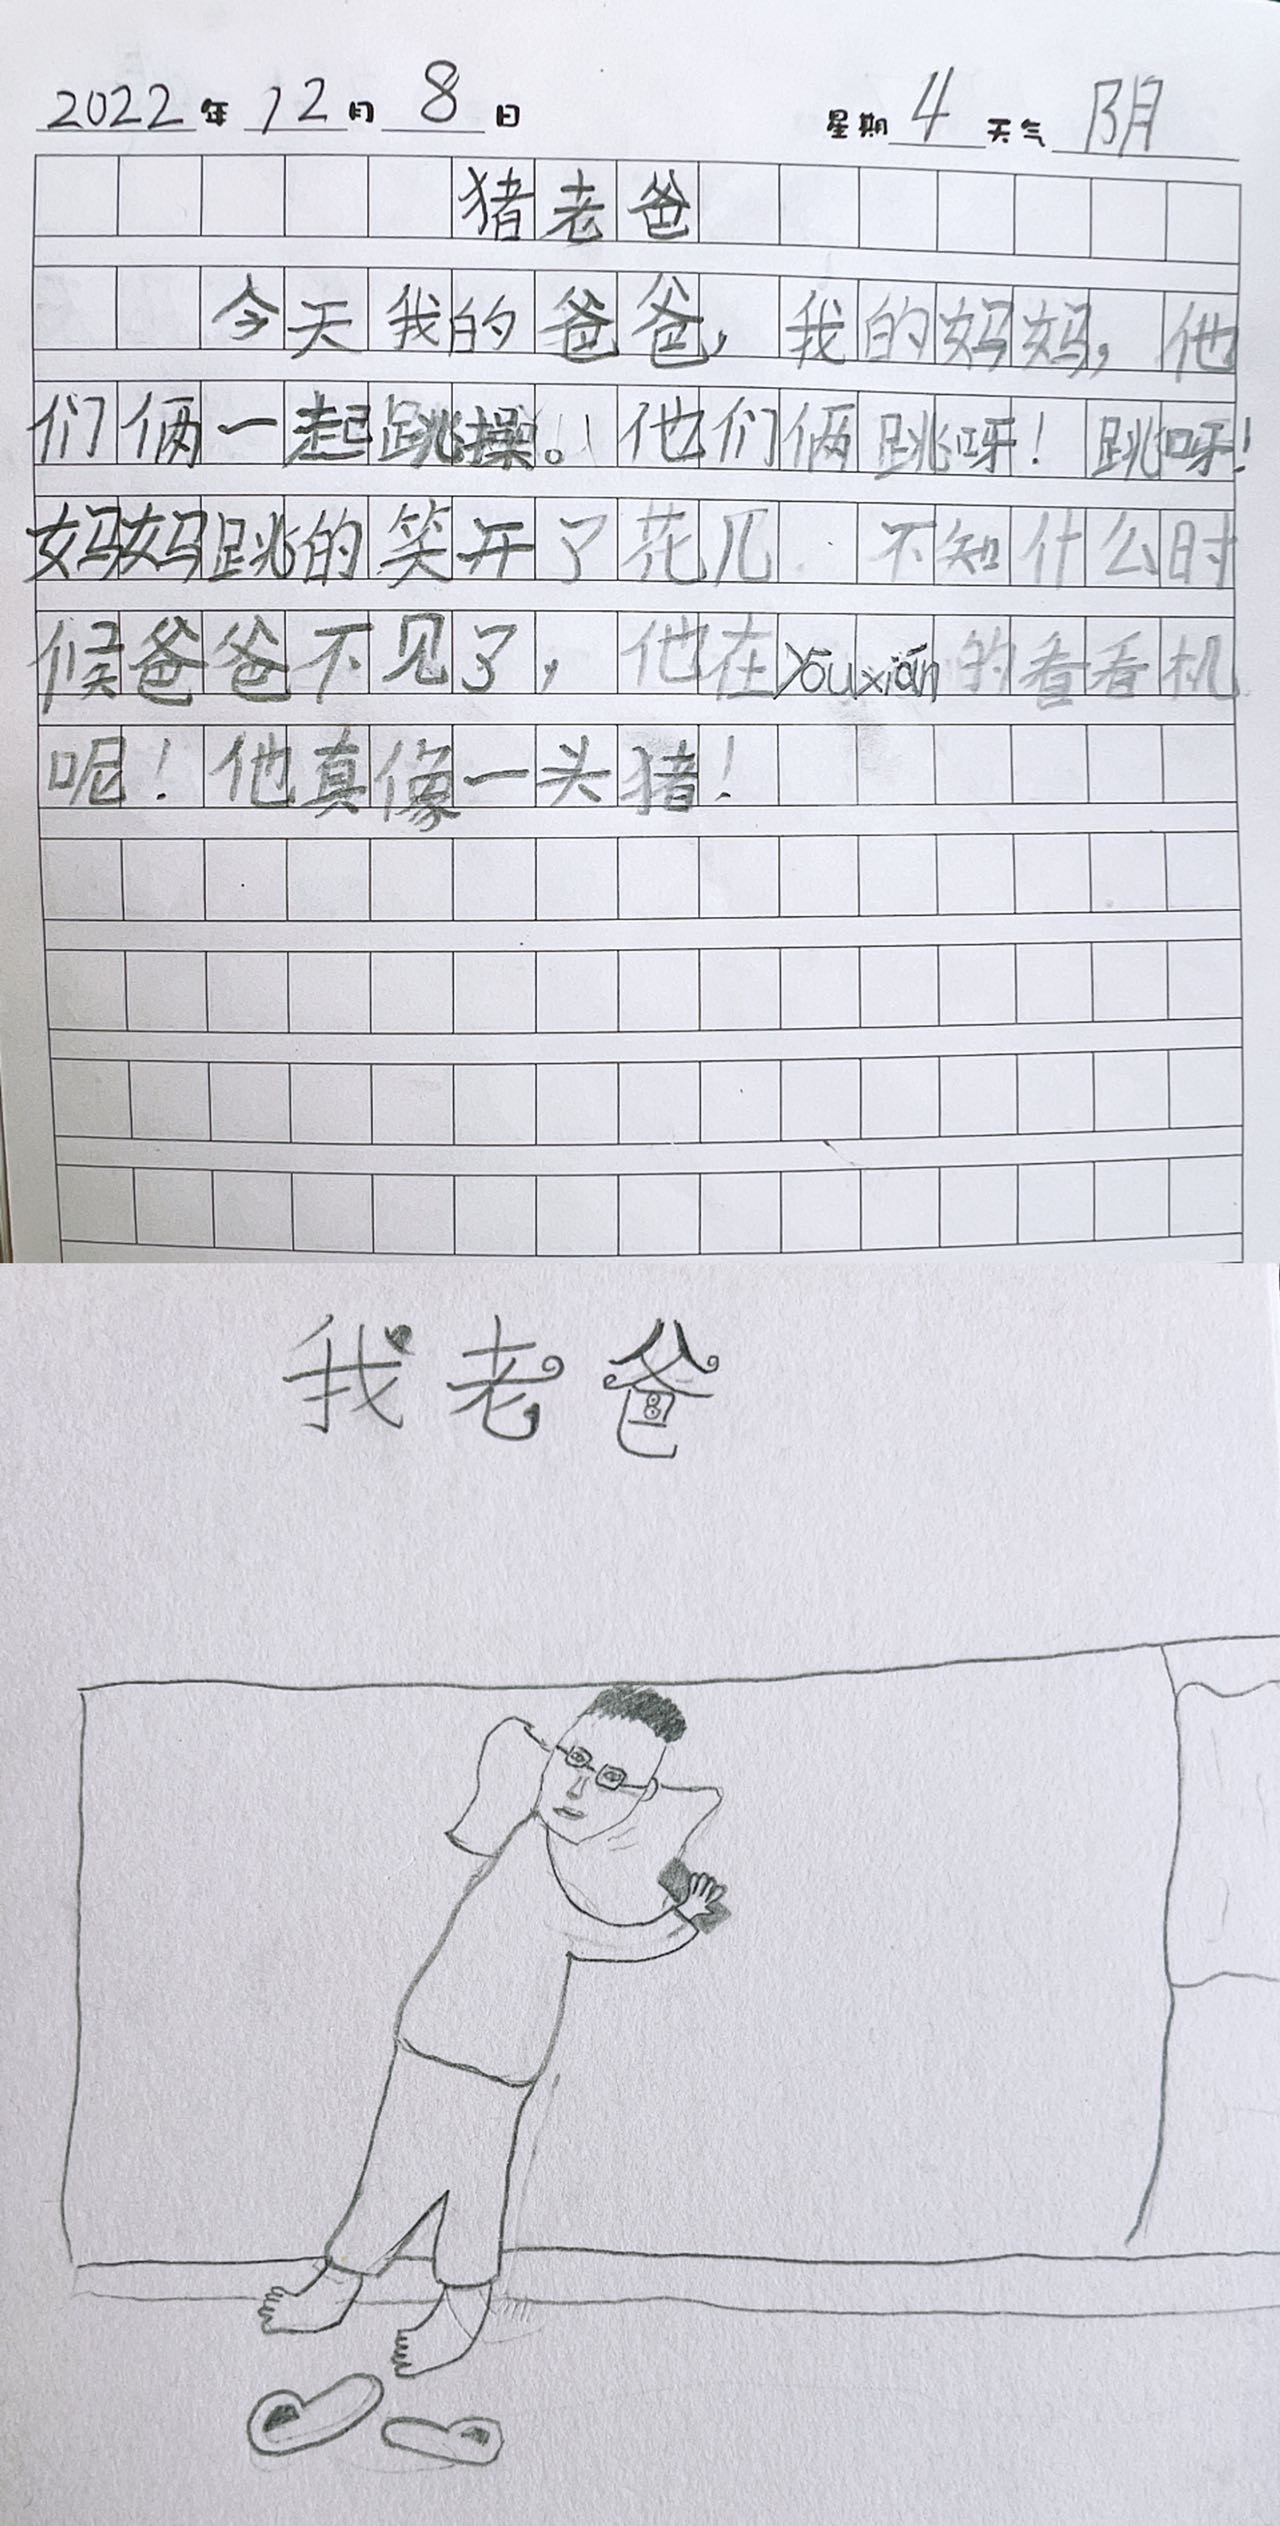 2022年12月8日 星期4天气阴
猪老爸
今天我的爸爸，我的妈妈，他
们俩一起跳操。他们俩跳呀！跳呀！
妈妈跳的笑开了花儿．不知什么时
候爸爸不见了，他在youxián的看看机
呢！他真像一头猪！
我老爸